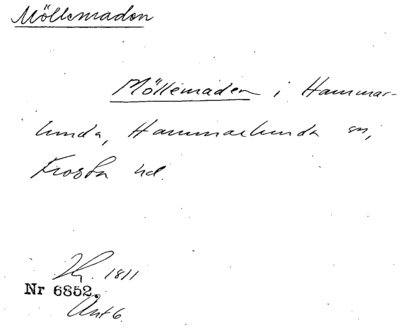 Möllemaden
Möllemaden i Hammar-
lunda, Hammarlunda sn,
Frosta hd.
1811
Nr 6852.
Akt 6.